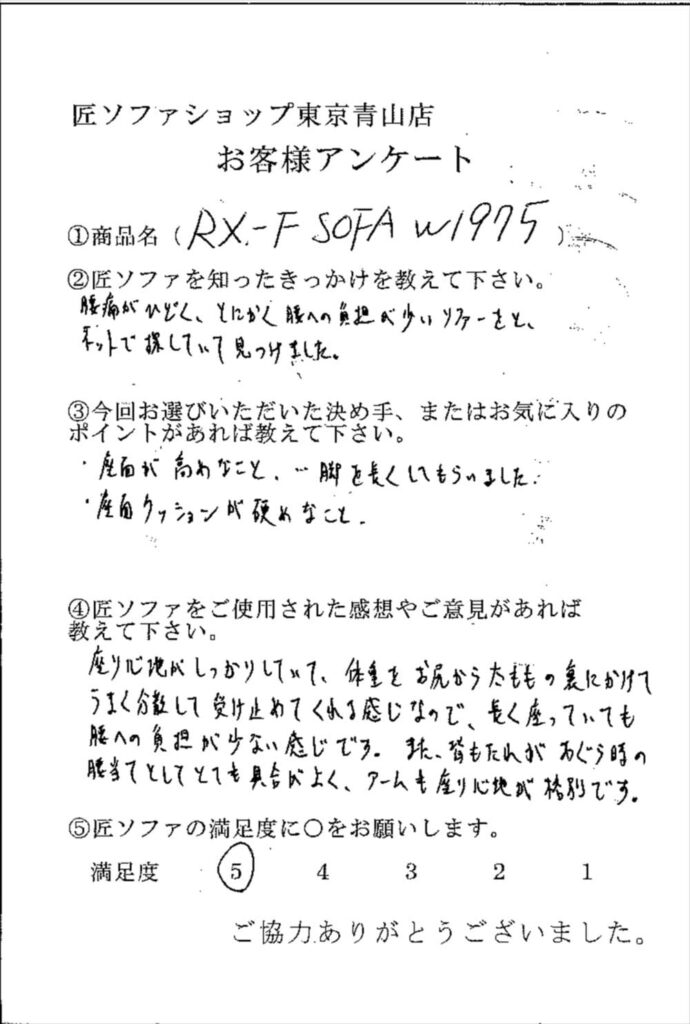 匠ソファショップ東京青山店
お客様アンケート
①商品名（RX-F SOFA W1975）
②匠ソファを知ったきっかけを教えて下さい。
腰痛がひどく、とにかく腰への負担が少いソファーをと、
ネットで探していて見つけました。
③今回お選びいただいた決め手、またはお気に入りの
ポイントがあれば教えて下さい。
・座面が高めなこと、…脚を長くしてもらいました.
・座面クッションが硬めなこと.
④匠ソファをご使用された感想やご意見があれば
教えて下さい。
座り心地がしっかりしていて、体重をお尻から太ももの裏にかけて
うまく分散して受け止めてくれる感じなので、長く座っていても
腰への負担が少ない感じです。また、背もたれがあぐら時の
腰当てとしてとても具合がよく、アームも座り心地が格別です。
⑤匠ソファの満足度に○をお願いします。
満足度 5 4 3 2 1
ご協力ありがとうございました。